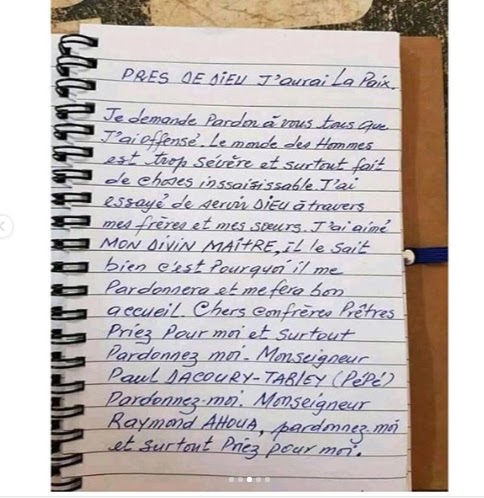 PRES DE DIEU J'aurai La Paix.
Je demande Pardon à vous tous que
J'ai offensé. Le monde des Hommes
est trop sévère et surtout fait
de choses inssaisissable. J'ai
essayé de servir DIEU à travers
mes frères et mes sœurs. J'ai aimé
MON DIVIN MAÎTRE, il le sait
bien c'est Pourquoi il me
Pardonnera et me fera bon
accueil. Chers confrères Prêtres
Priez Pour moi et Surtout
Pardonnez moi. Monseigneur
Paul DACOURY-TABLEY (PéPé)
Pardonnez-moi. Monseigneur
Raymond AHOUA, pardonnez moi
et surtout Priez pour moi.